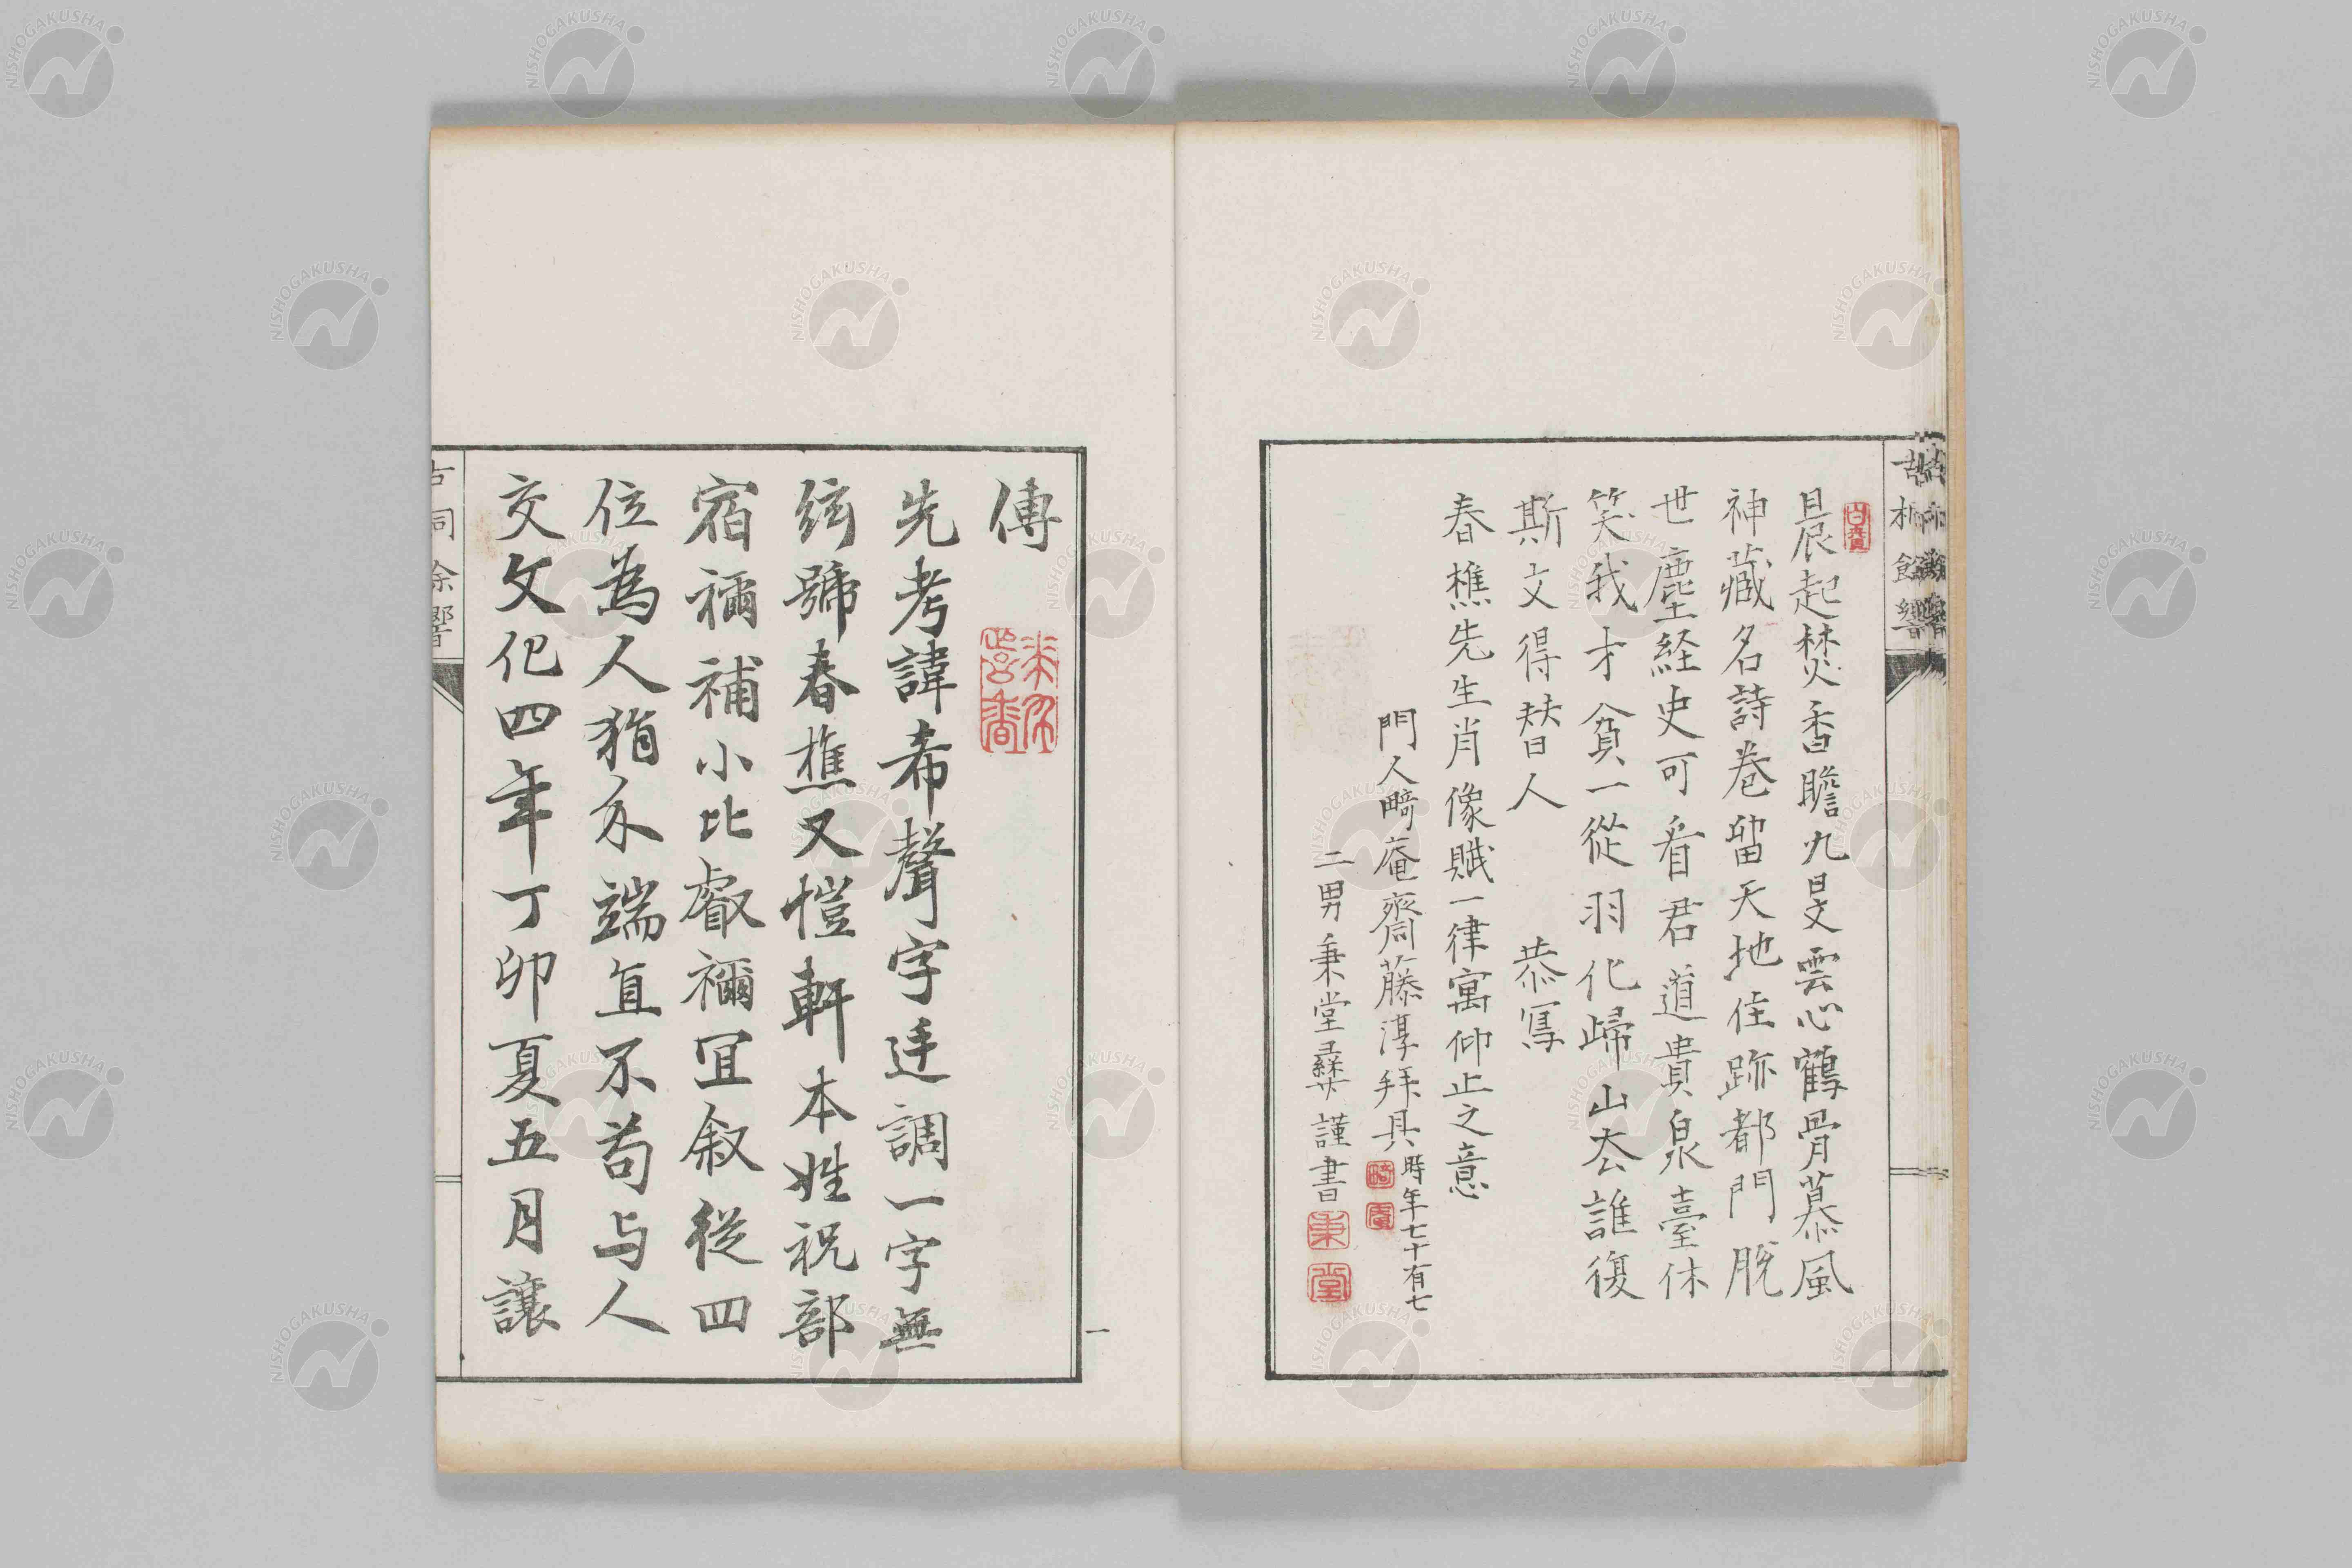 晨起焚香瞻九旻雲心鶴骨慕風
神藏名詩卷留天地住跡都門脫
世塵経史可看君道貴泉臺休
笑我才貧一從羽化歸山去誰復
斯文得替人　恭寫
春樵先生肖像賦一律寓仰止之意
門人畸庵齋藤淳拜具時年七十有七
二男秉堂彝謹書
秉堂
傳
先考諱希聲字廷調一字無
絃號春樵又愷軒本姓祝部
宿禰補小比叡禰冝叙從四
位為人狷介端直不苟与人
交文化四年丁卯夏五月讓
一
NISHOGAKUSHA